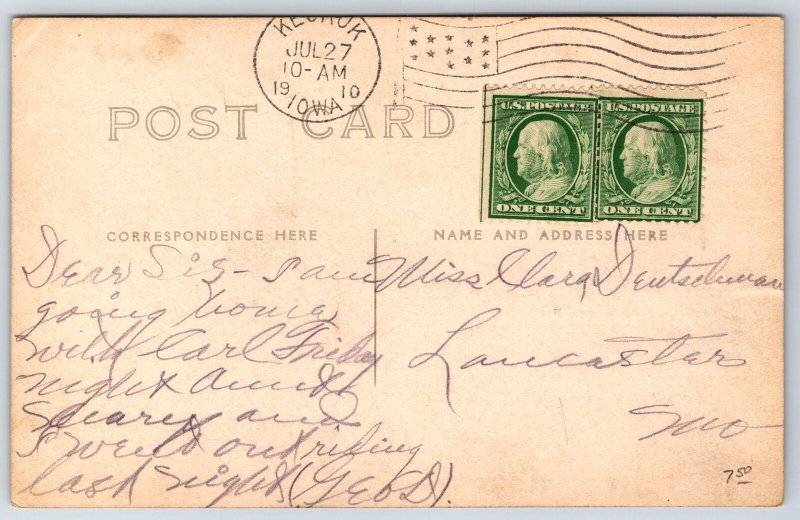 KEOKUK
JUL 27
10-AM
19 10
IOWA
POST CARD
U.S. POSTAGE
ONE CENT
U.S. POSTAGE
ONE CENT
CORRESPONDENCE HERE
NAME AND ADDRESS HERE
Dear Sis - I am
going home
with Carl Friday
night Aunt
and
I went out riding
last night (GEOD).
Miss Clara Deutschman
Lancaster
Mo
7.50